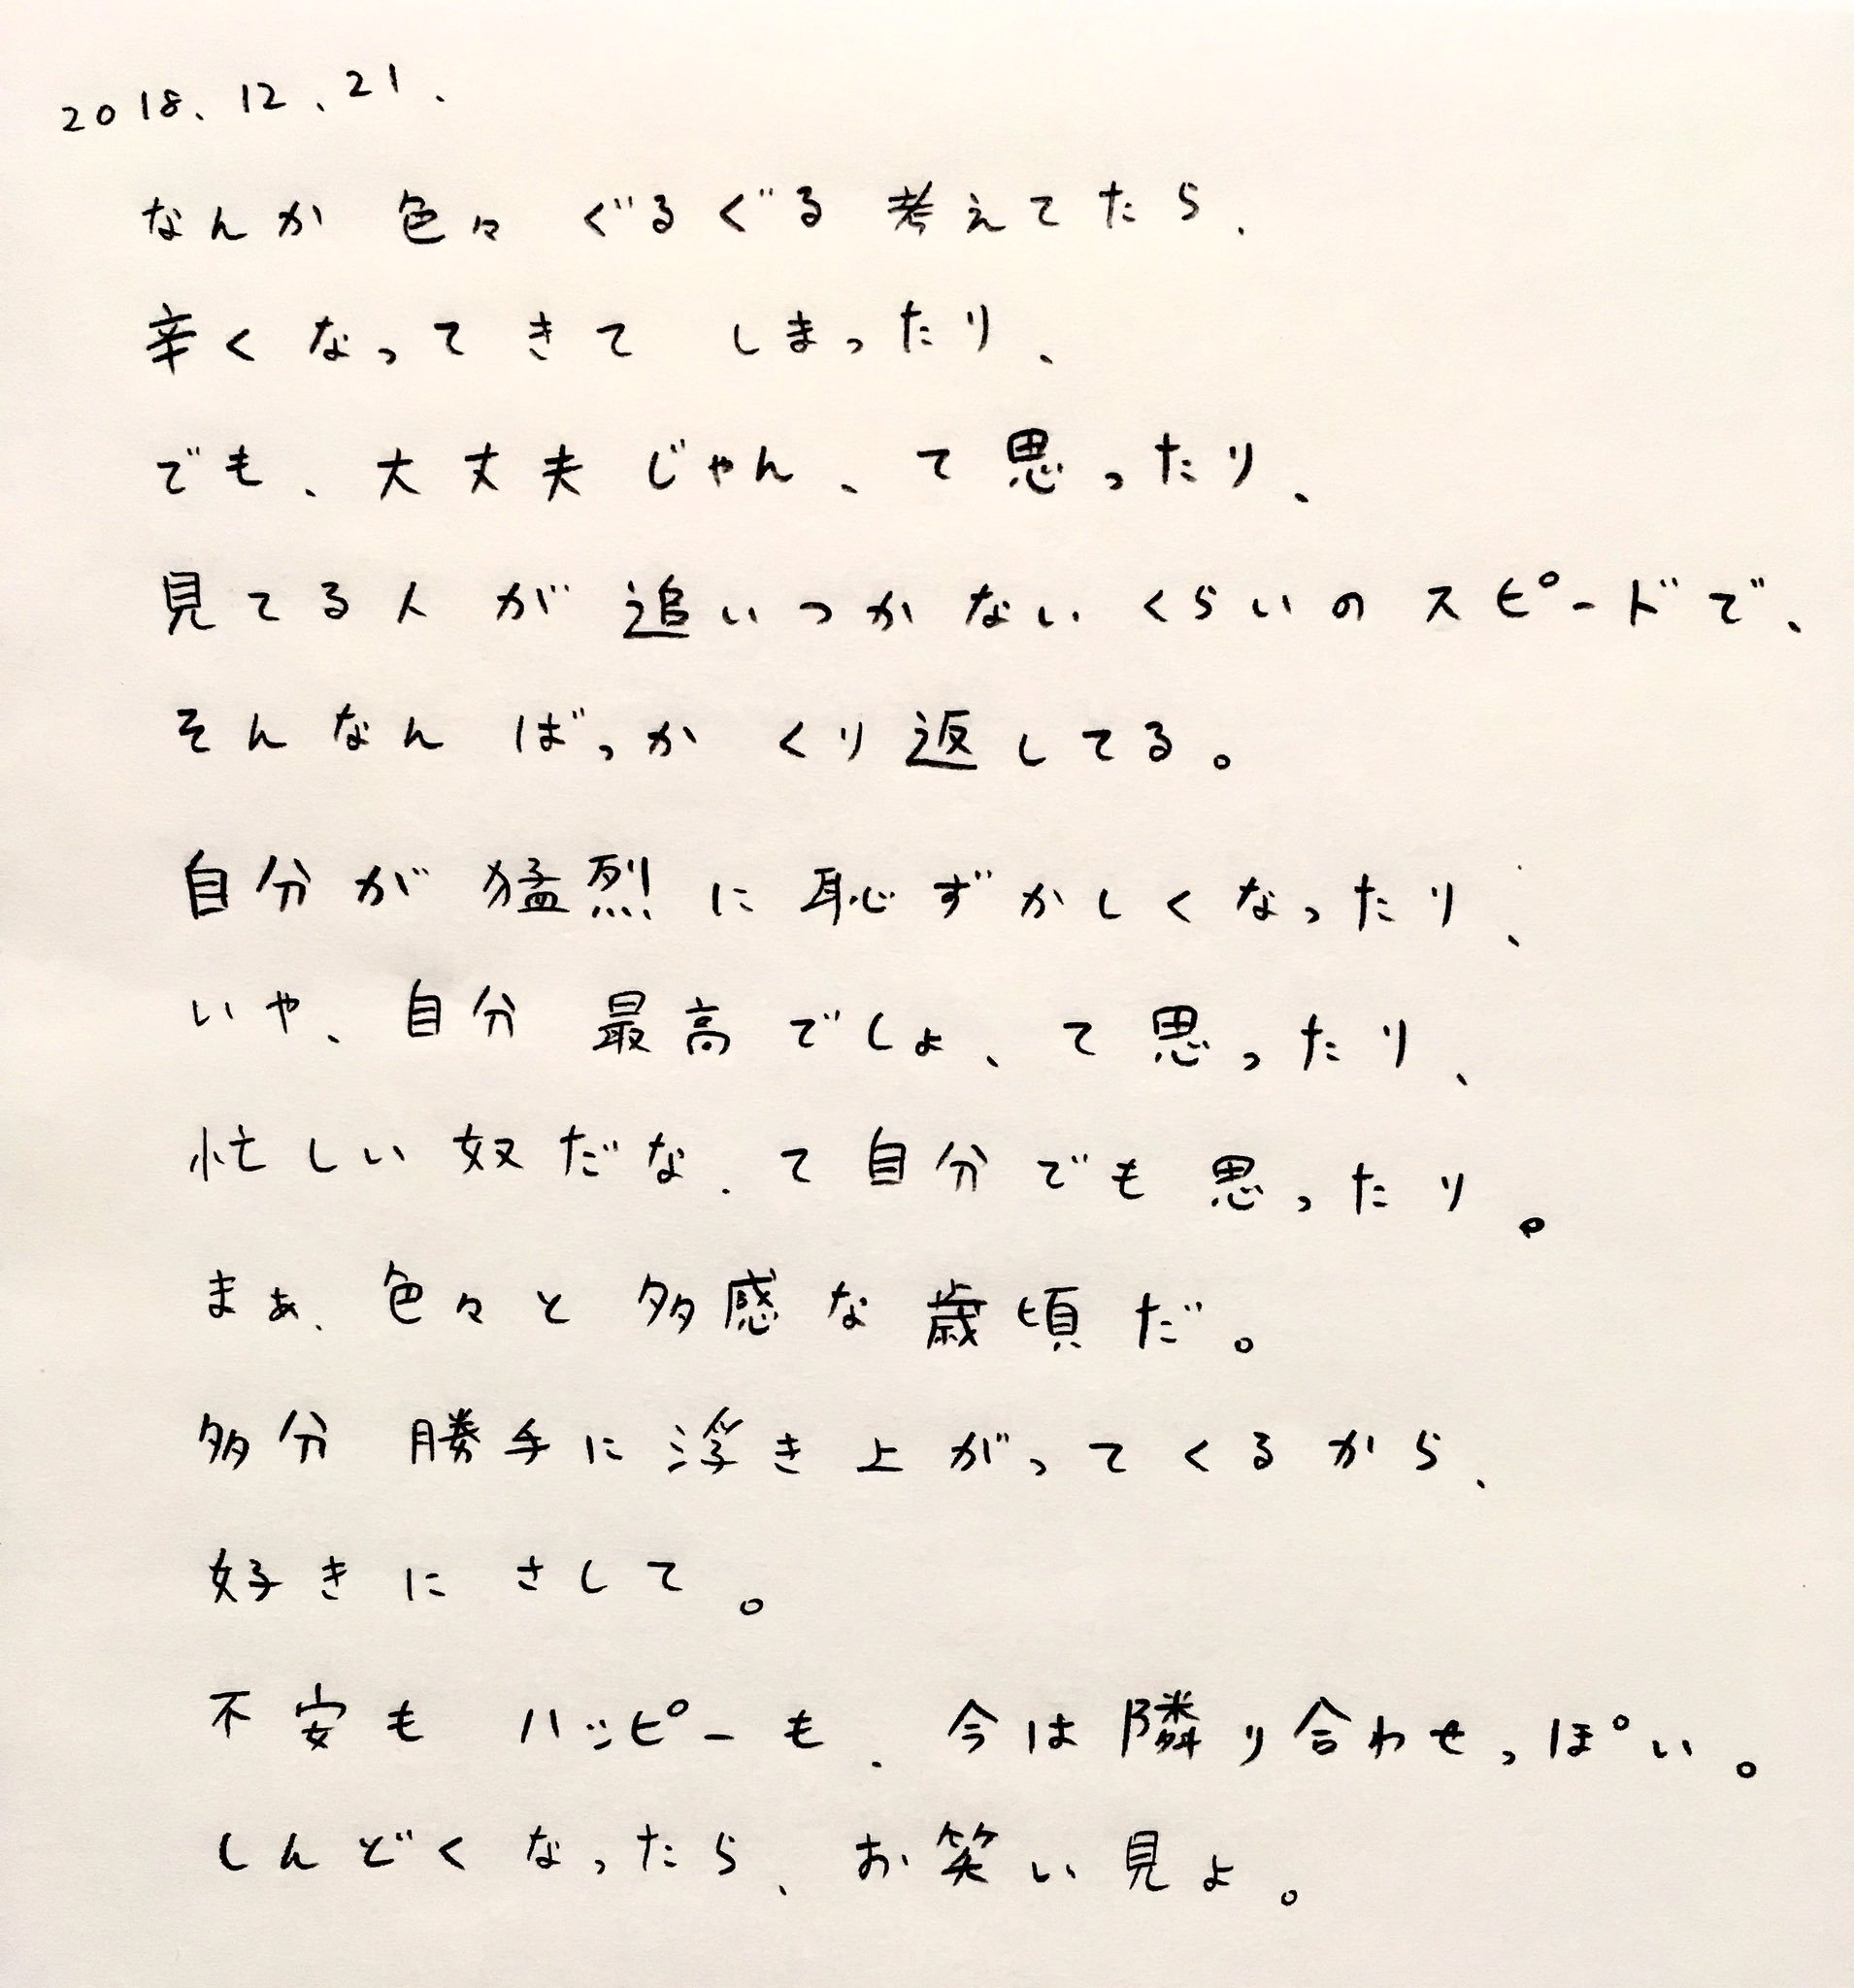 2018、12、21、
なんか 色々 ぐるぐる 考えてたら、
辛くなってきて しまったり、
でも、大丈夫じゃん、て思ったり、
見てる人が追いつかないくらいのスピードで、
そんなんばっか くり返してる。
自分が猛烈に恥ずかしくなったり、
いや、自分 最高でしょ、て思ったり、
忙しい奴だな、て自分でも思ったり。
まぁ、色々と多感な歳頃だ。
多分 勝手に浮き上がってくるから、
好きに さして。
不安も ハッピーも、今は隣り合わせっぽい。
しんどくなったら、お笑い見よ。